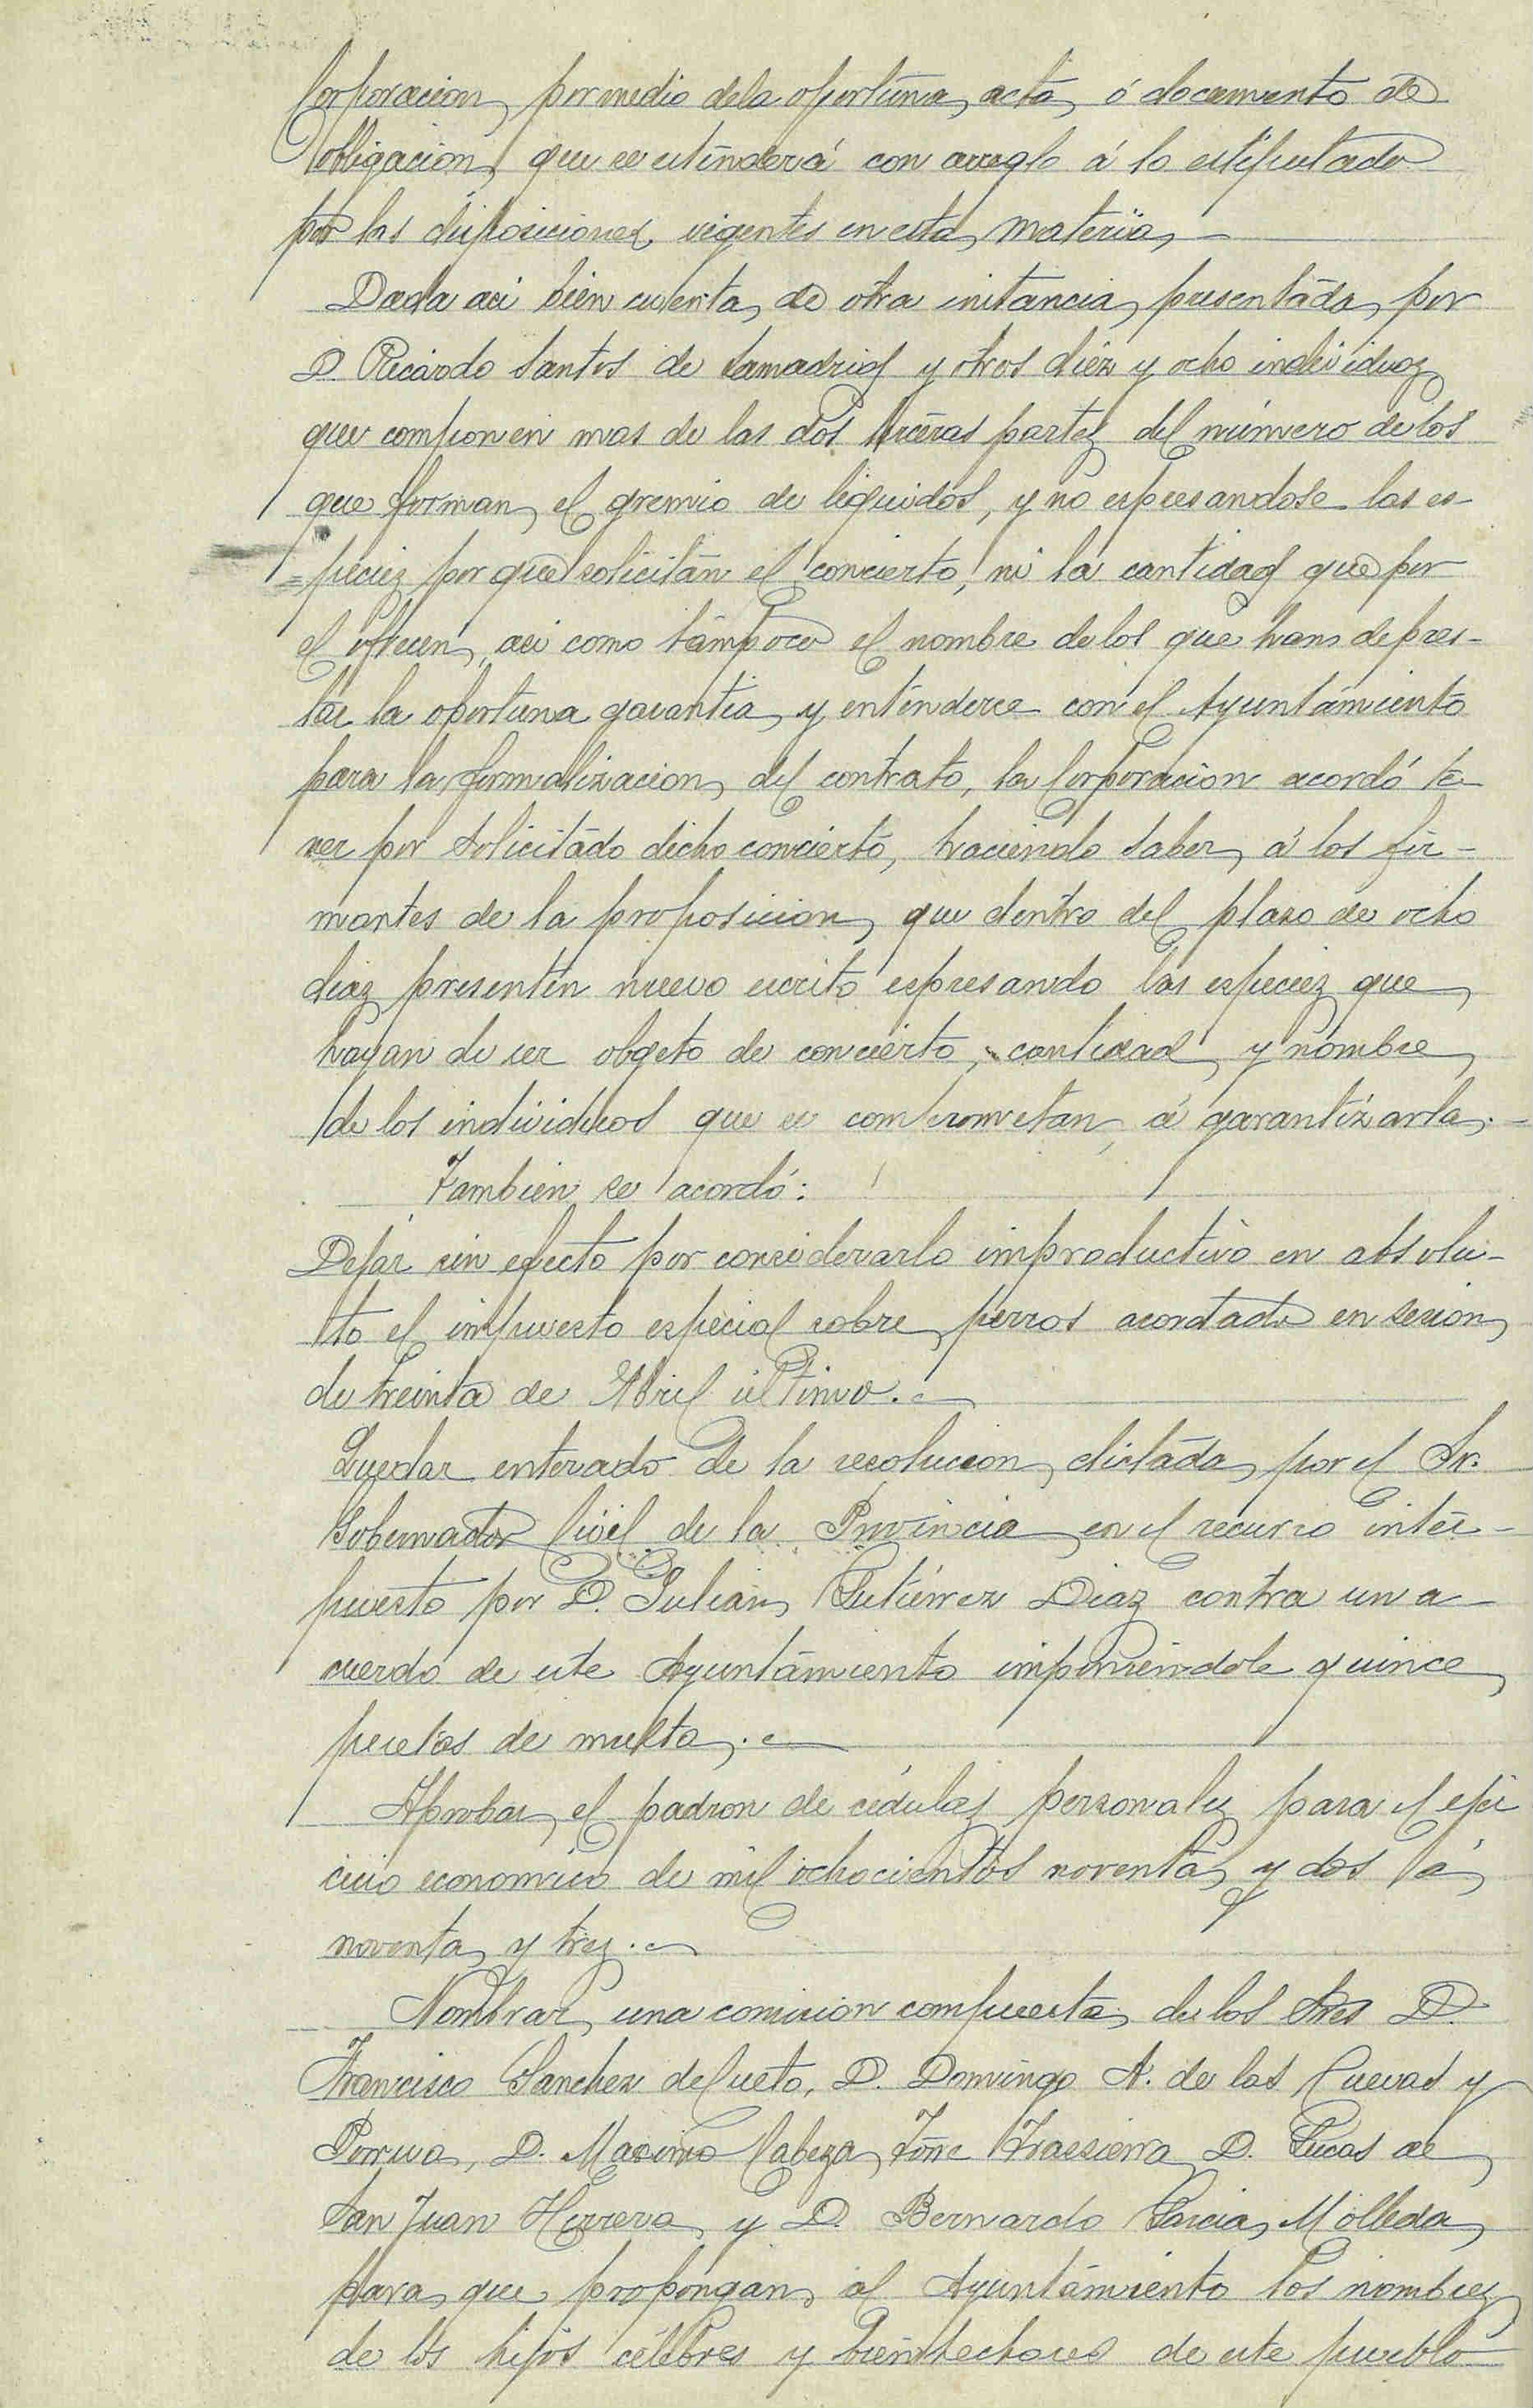 Corporacion, por medio de la oportuna acta ó documento de
obligacion que se estenderá con arreglo á lo estipulado
por las disposiciones vigentes en esta materia,
Dada asi bien cuenta, de otra instancia, presentada, por
D. Ricardo Santos de Lamadrid y otros diez y ocho individuos
que componen mas de las dos terceras partes del número de los
que forman el gremio de liquidos, y no espresandose las es-
pecies por que solicitan el concierto, ni la cantidad que por
el ofrecen, asi como tampoco el nombre de los que han de pres-
tar la oportuna garantia y entenderse con el Ayuntamiento
para la formalizacion del contrato, la Corporacion acordó te-
ner por solicitado dicho concierto, haciendo saber, á los fir-
mantes de la proposicion, que dentro del plazo de ocho
dias presenten nuevo escrito espresando las especies que
hayan de ser obgeto de concierto, cantidad y nombre
de los individuos que se comprometan á garantizarla.
Tambien se acordó:
Dejar sin efecto por considerarlo improductivo en absolu-
to el impuesto especial sobre perros acordado en sesion,
de treinta de Abril ultimo.
Quedar enterado de la resolucion, dictada, por el Sr.
Gobernador Civil de la Provincia en el recurso inter-
puesto por D. Julian Gutiérrez Diaz contra un a-
cuerdo de este Ayuntamiento imponiendole quince
pesetas de multa.
Aprobar el padron de cédulas personales para el eger
cicio economico de mil ochocientos noventa y dos á
noventa y tres.
Nombrar una comision compuesta de los Sres D.
Francisco Sanchez de Cueto, D. Domingo A. de las Cuevas y
Porrua, D. Maximo Cabeza, Torre Trassierra D. Lucas de
San Juan Herrera y D. Bernardo Garcia, Molleda,
para que propongan al Ayuntamiento los nombres
de los hijos célebres y bienhechores de este pueblo